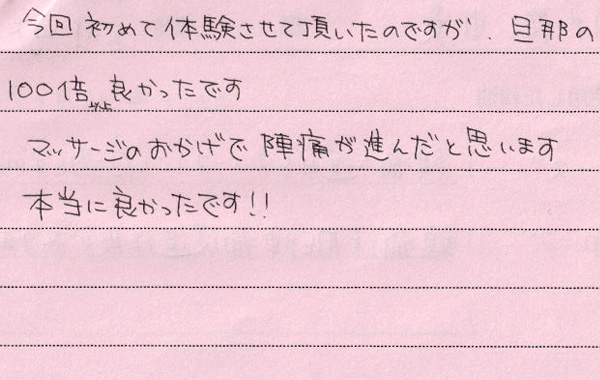 今回初めて体験させて頂いたのですが、旦那の
100倍良かったです
マッサージのおかげで陣痛が進んだと思います
本当に良かったです!!